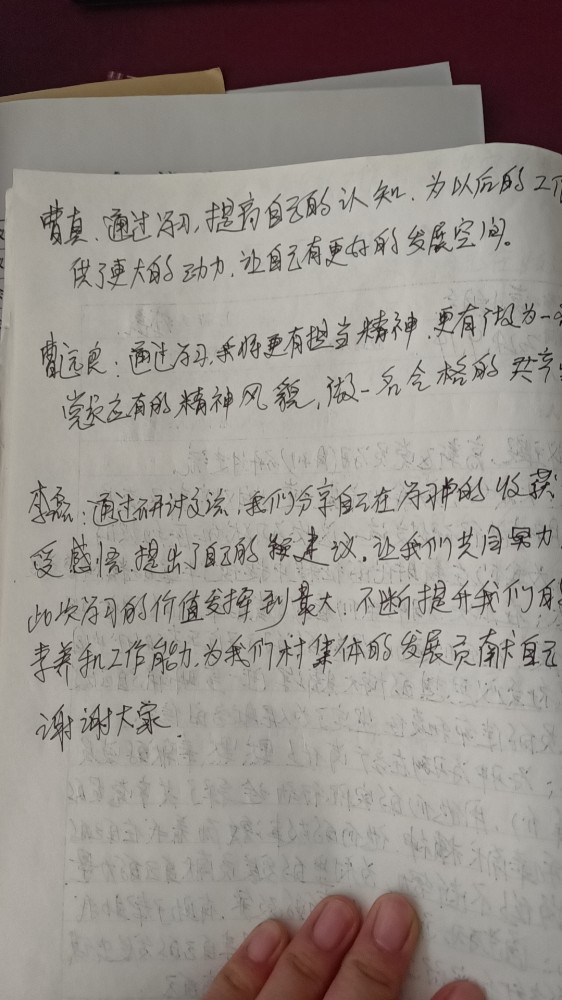 曹真:通过学习,提高自己的认知,为以后的工作
供了更大的动力,让自己有更好的发展空间。
曹远良:通过学习,我将更有担当精神,更有做为一名
党员应有的精神风貌,做一名合格的共产
李磊:通过研讨交流,我们分享自己在学习中的收获
受感悟提出了自己的建议,让我们共同努力
此次学习的价值发挥到最大,不断提升我们自身
素养和工作能力,为我们村集体的发展贡献自己
谢谢大家.